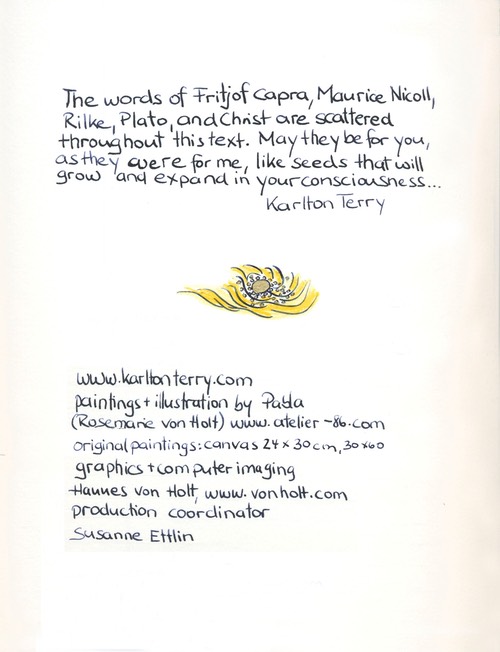 The words of Fritjof Capra, Maurice Nicoll,
Rilke, Plato, and Christ are scattered
throughout this text. May they be for you,
as they were for me, like seeds that will
grow and expand in your consciousness...
Karlton Terry
www.karltonterry.com
paintings + illustration by Padda
(Rosemarie von Holt) www.atelier-86.com
original paintings: canvas 24 x 30 cm, 30x60
graphics + computer imaging
Hannes von Holt, www.vonholt.com
production coordinator
Susanne Ettlin